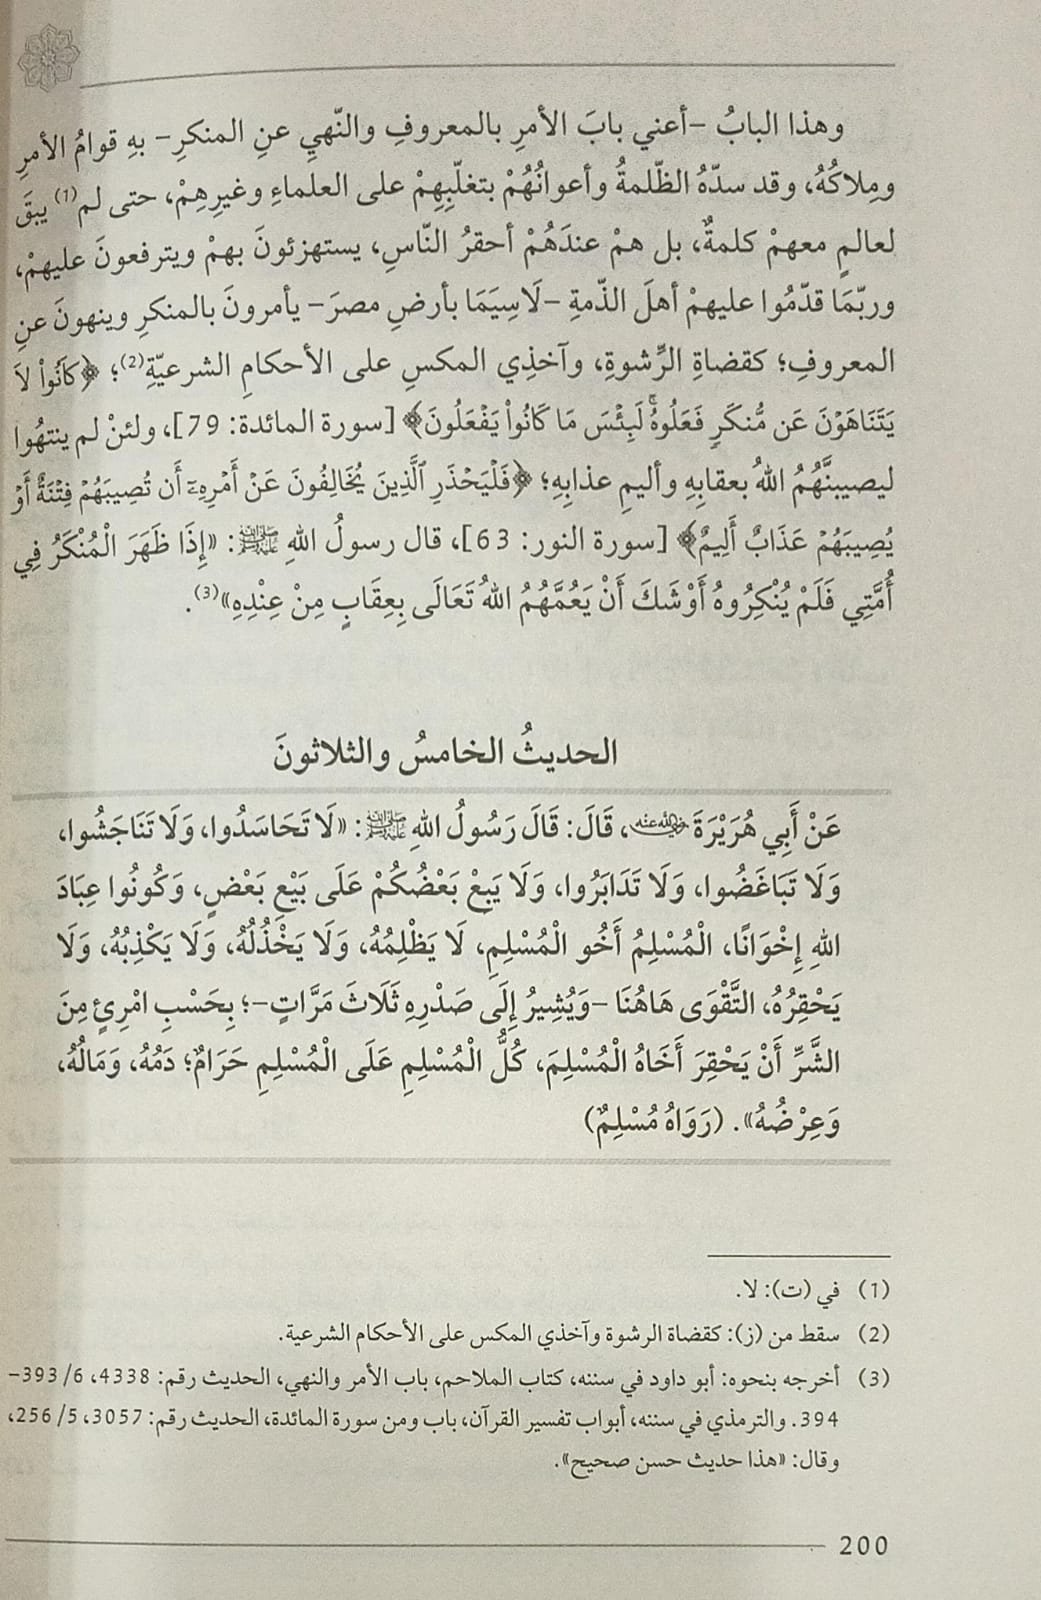 وهذا البابُ –أعني بابَ الأمرِ بالمعروفِ والنّهيِ عنِ المنكرِ– بهِ قوامُ الأمرِ
ومِلاكُهُ، وقد سدّهُ الظّلمةُ وأعوانُهُمْ بتغلّبِهِمْ على العلماءِ وغيرِهِمْ، حتى لم(1) يبقَ
لعالمٍ معهمْ كلمةٌ، بل همْ عندَهُمْ أحقرُ النّاسِ، يستهزئونَ بهمْ ويترفعونَ عليهمْ،
وربّمَا قدّمُوا عليهمْ أهلَ الذّمةِ –لَاسِيَمَا بأرضِ مصرَ– يأمرونَ بالمنكرِ وينهونَ عنِ
المعروفِ؛ كقضاةِ الرِّشوةِ، وآخذِي المكسِ على الأحكامِ الشرعيّةِ(2)؛ ﴿كَانُواْ لَا
يَتَنَاهَوْنَ عَن مُّنكَرٍ فَعَلُوهُۚ لَبِئْسَ مَا كَانُواْ يَفْعَلُونَ﴾ [سورة المائدة: 79]، ولئنْ لم ينتهُوا
ليصيبنَّهُمُ اللهُ بعقابِهِ وأليمِ عذابِهِ؛ ﴿فَلْيَحْذَرِ ٱلَّذِينَ يُخَالِفُونَ عَنْ أَمْرِهِۦٓ أَن تُصِيبَهُمْ فِتْنَةٌ أَوْ
يُصِيبَهُمْ عَذَابٌ أَلِيمٌ﴾ [سورة النور: 63]، قال رسولُ اللهِ ﷺ: «إِذَا ظَهَرَ الْمُنْكَرُ فِي
أُمَّتِي فَلَمْ يُنْكِرُوهُ أَوْشَكَ أَنْ يَعُمَّهُمُ اللهُ تَعَالَى بِعِقَابٍ مِنْ عِنْدِهِ»(3).
الحديثُ الخامسُ والثلاثونَ
عَنْ أَبِي هُرَيْرَةَ رضي الله عنه، قَالَ: قَالَ رَسُولُ اللهِ ﷺ: «لَا تَحَاسَدُوا، وَلَا تَنَاجَشُوا،
وَلَا تَبَاغَضُوا، وَلَا تَدَابَرُوا، وَلَا يَبِعْ بَعْضُكُمْ عَلَى بَيْعِ بَعْضٍ، وَكُونُوا عِبَادَ
اللهِ إِخْوَانًا، الْمُسْلِمُ أَخُو الْمُسْلِمِ، لَا يَظْلِمُهُ، وَلَا يَخْذُلُهُ، وَلَا يَكْذِبُهُ، وَلَا
يَحْقِرُهُ، التَّقْوَى هَاهُنَا –وَيُشِيرُ إِلَى صَدْرِهِ ثَلَاثَ مَرَّاتٍ–؛ بِحَسْبِ امْرِئٍ مِنَ
الشَّرِّ أَنْ يَحْقِرَ أَخَاهُ الْمُسْلِمَ، كُلُّ الْمُسْلِمِ عَلَى الْمُسْلِمِ حَرَامٌ؛ دَمُهُ، وَمَالُهُ،
وَعِرْضُهُ». (رَوَاهُ مُسْلِمٌ)
(1) في (ت): لا.
(2) سقط من (ز): كقضاة الرشوة وآخذي المكس على الأحكام الشرعية.
(3) أخرجه بنحوه: أبو داود في سننه، كتاب الملاحم، باب الأمر والنهي، الحديث رقم: 4338، 6/ 393–
394. والترمذي في سننه، أبواب تفسير القرآن، باب ومن سورة المائدة، الحديث رقم: 3057، 5/ 256،
وقال: «هذا حديث حسن صحيح».
200